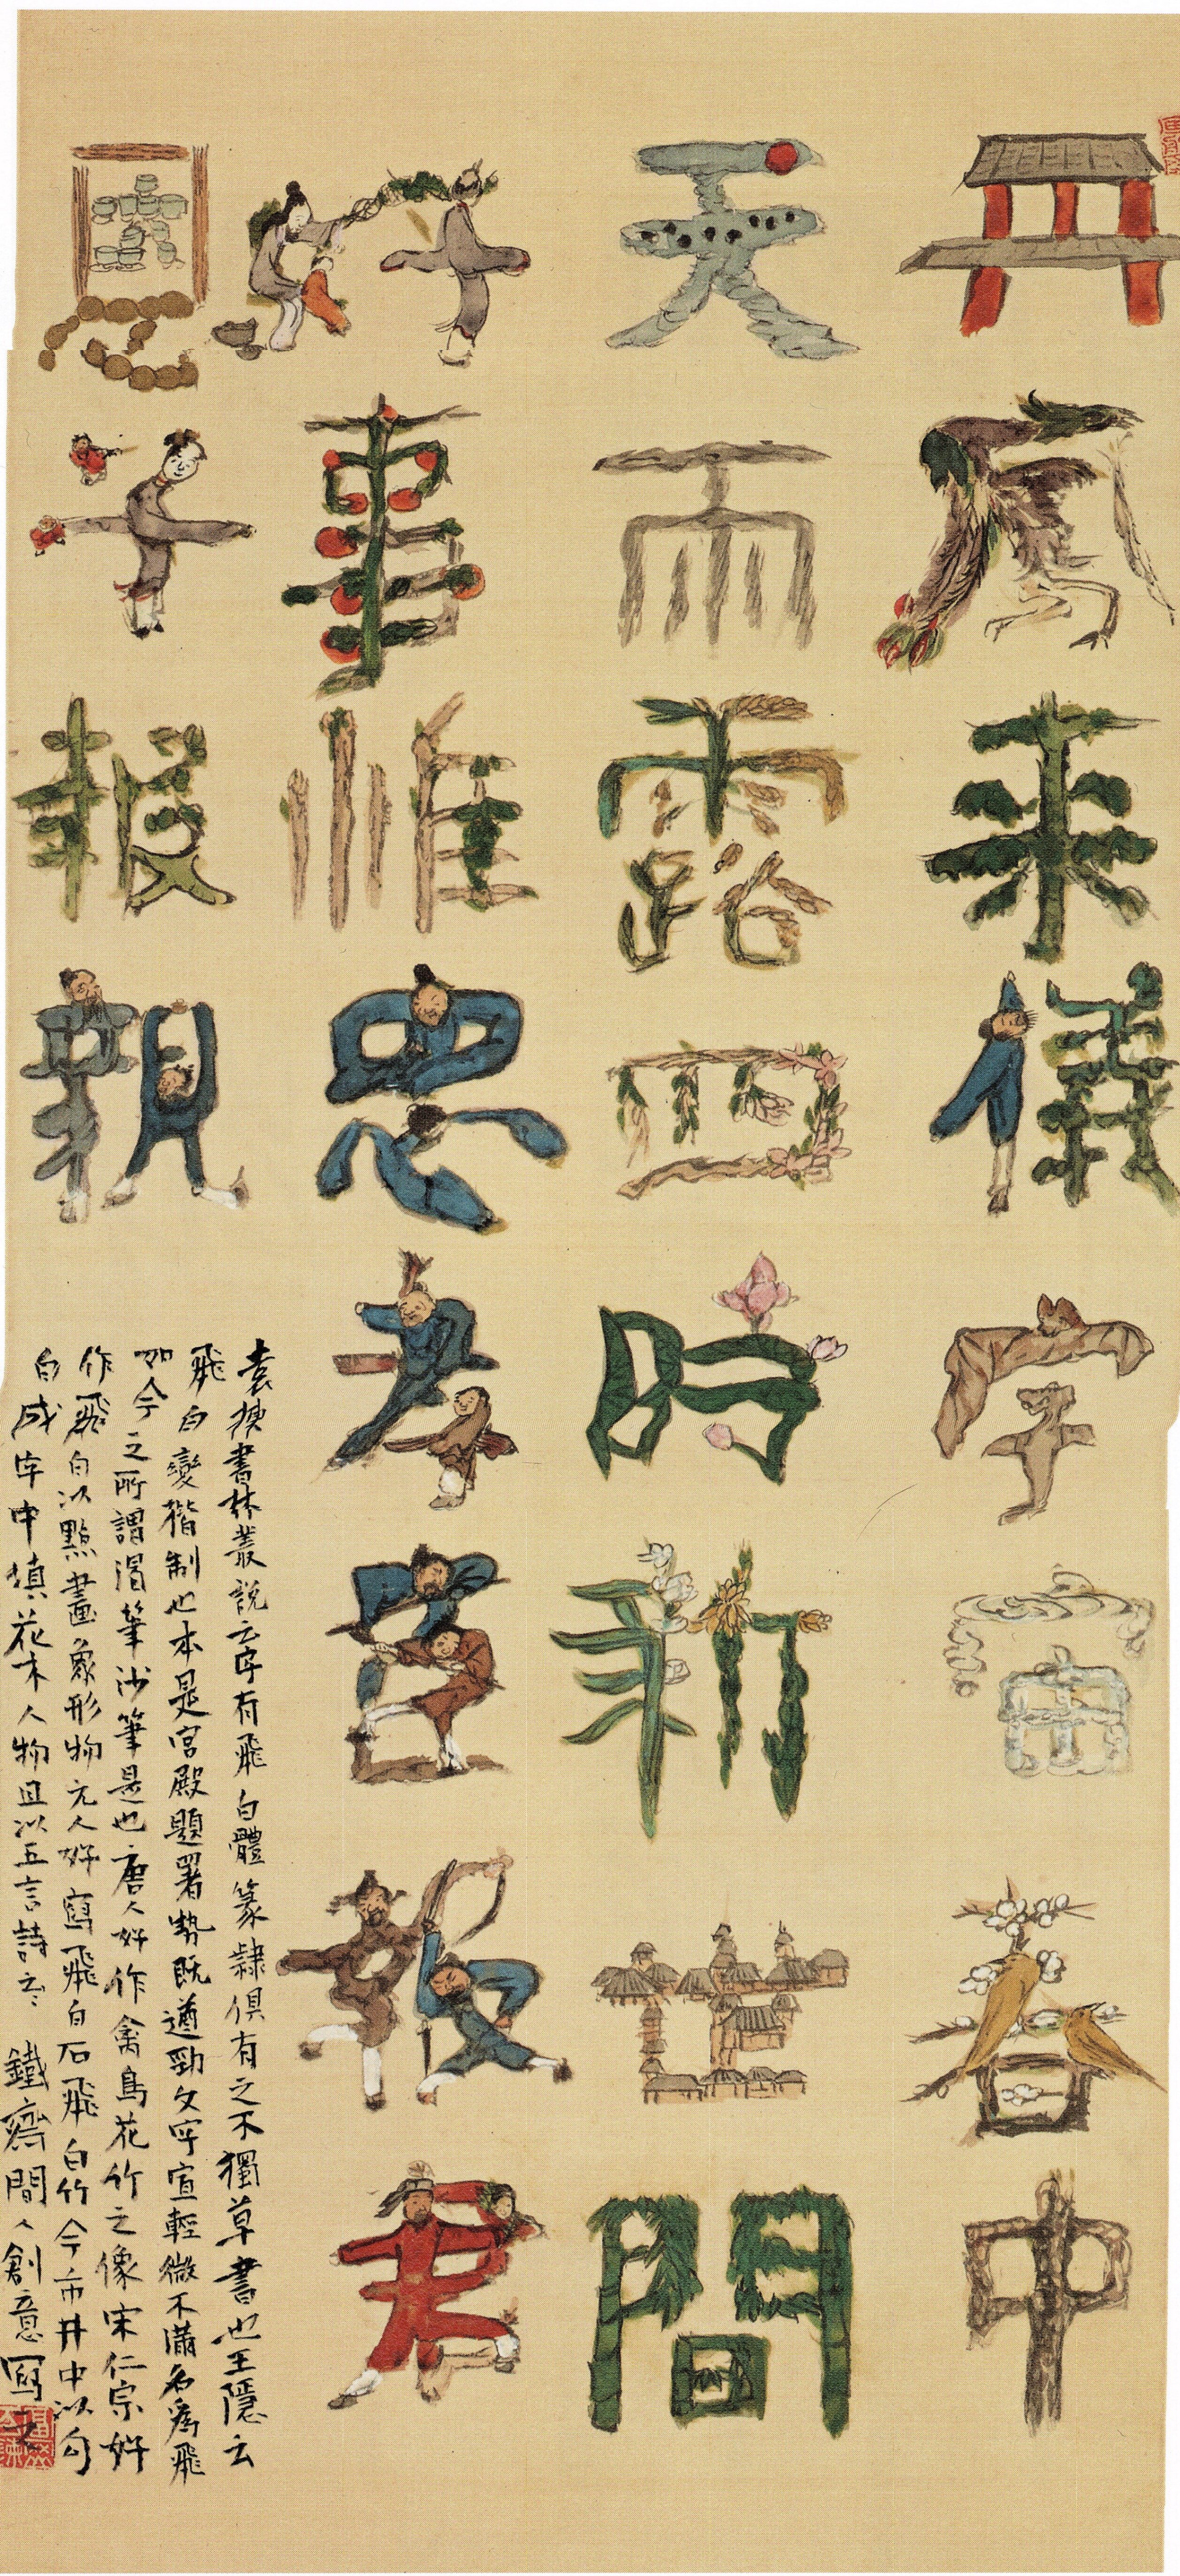 丹鳳来儀宇宙春中
天雨露四時新世間
好事惟忠孝臣報君
恩子報親
袁書林叢說云字有飛白體篆隸俱有之不獨草書也王隱云
飛白變楷制也本是宮殿題署勢既遒勁文字宜輕微不滿名為飛
如今之所謂渴筆沙筆是也唐人好作禽鳥花竹之像宋仁宗好
作飛白以點畫象形物元人好寫飛白石飛白竹今市井中以勾
白成字中填花木人物且以五言詩云云 鐵齋間人創意寫之